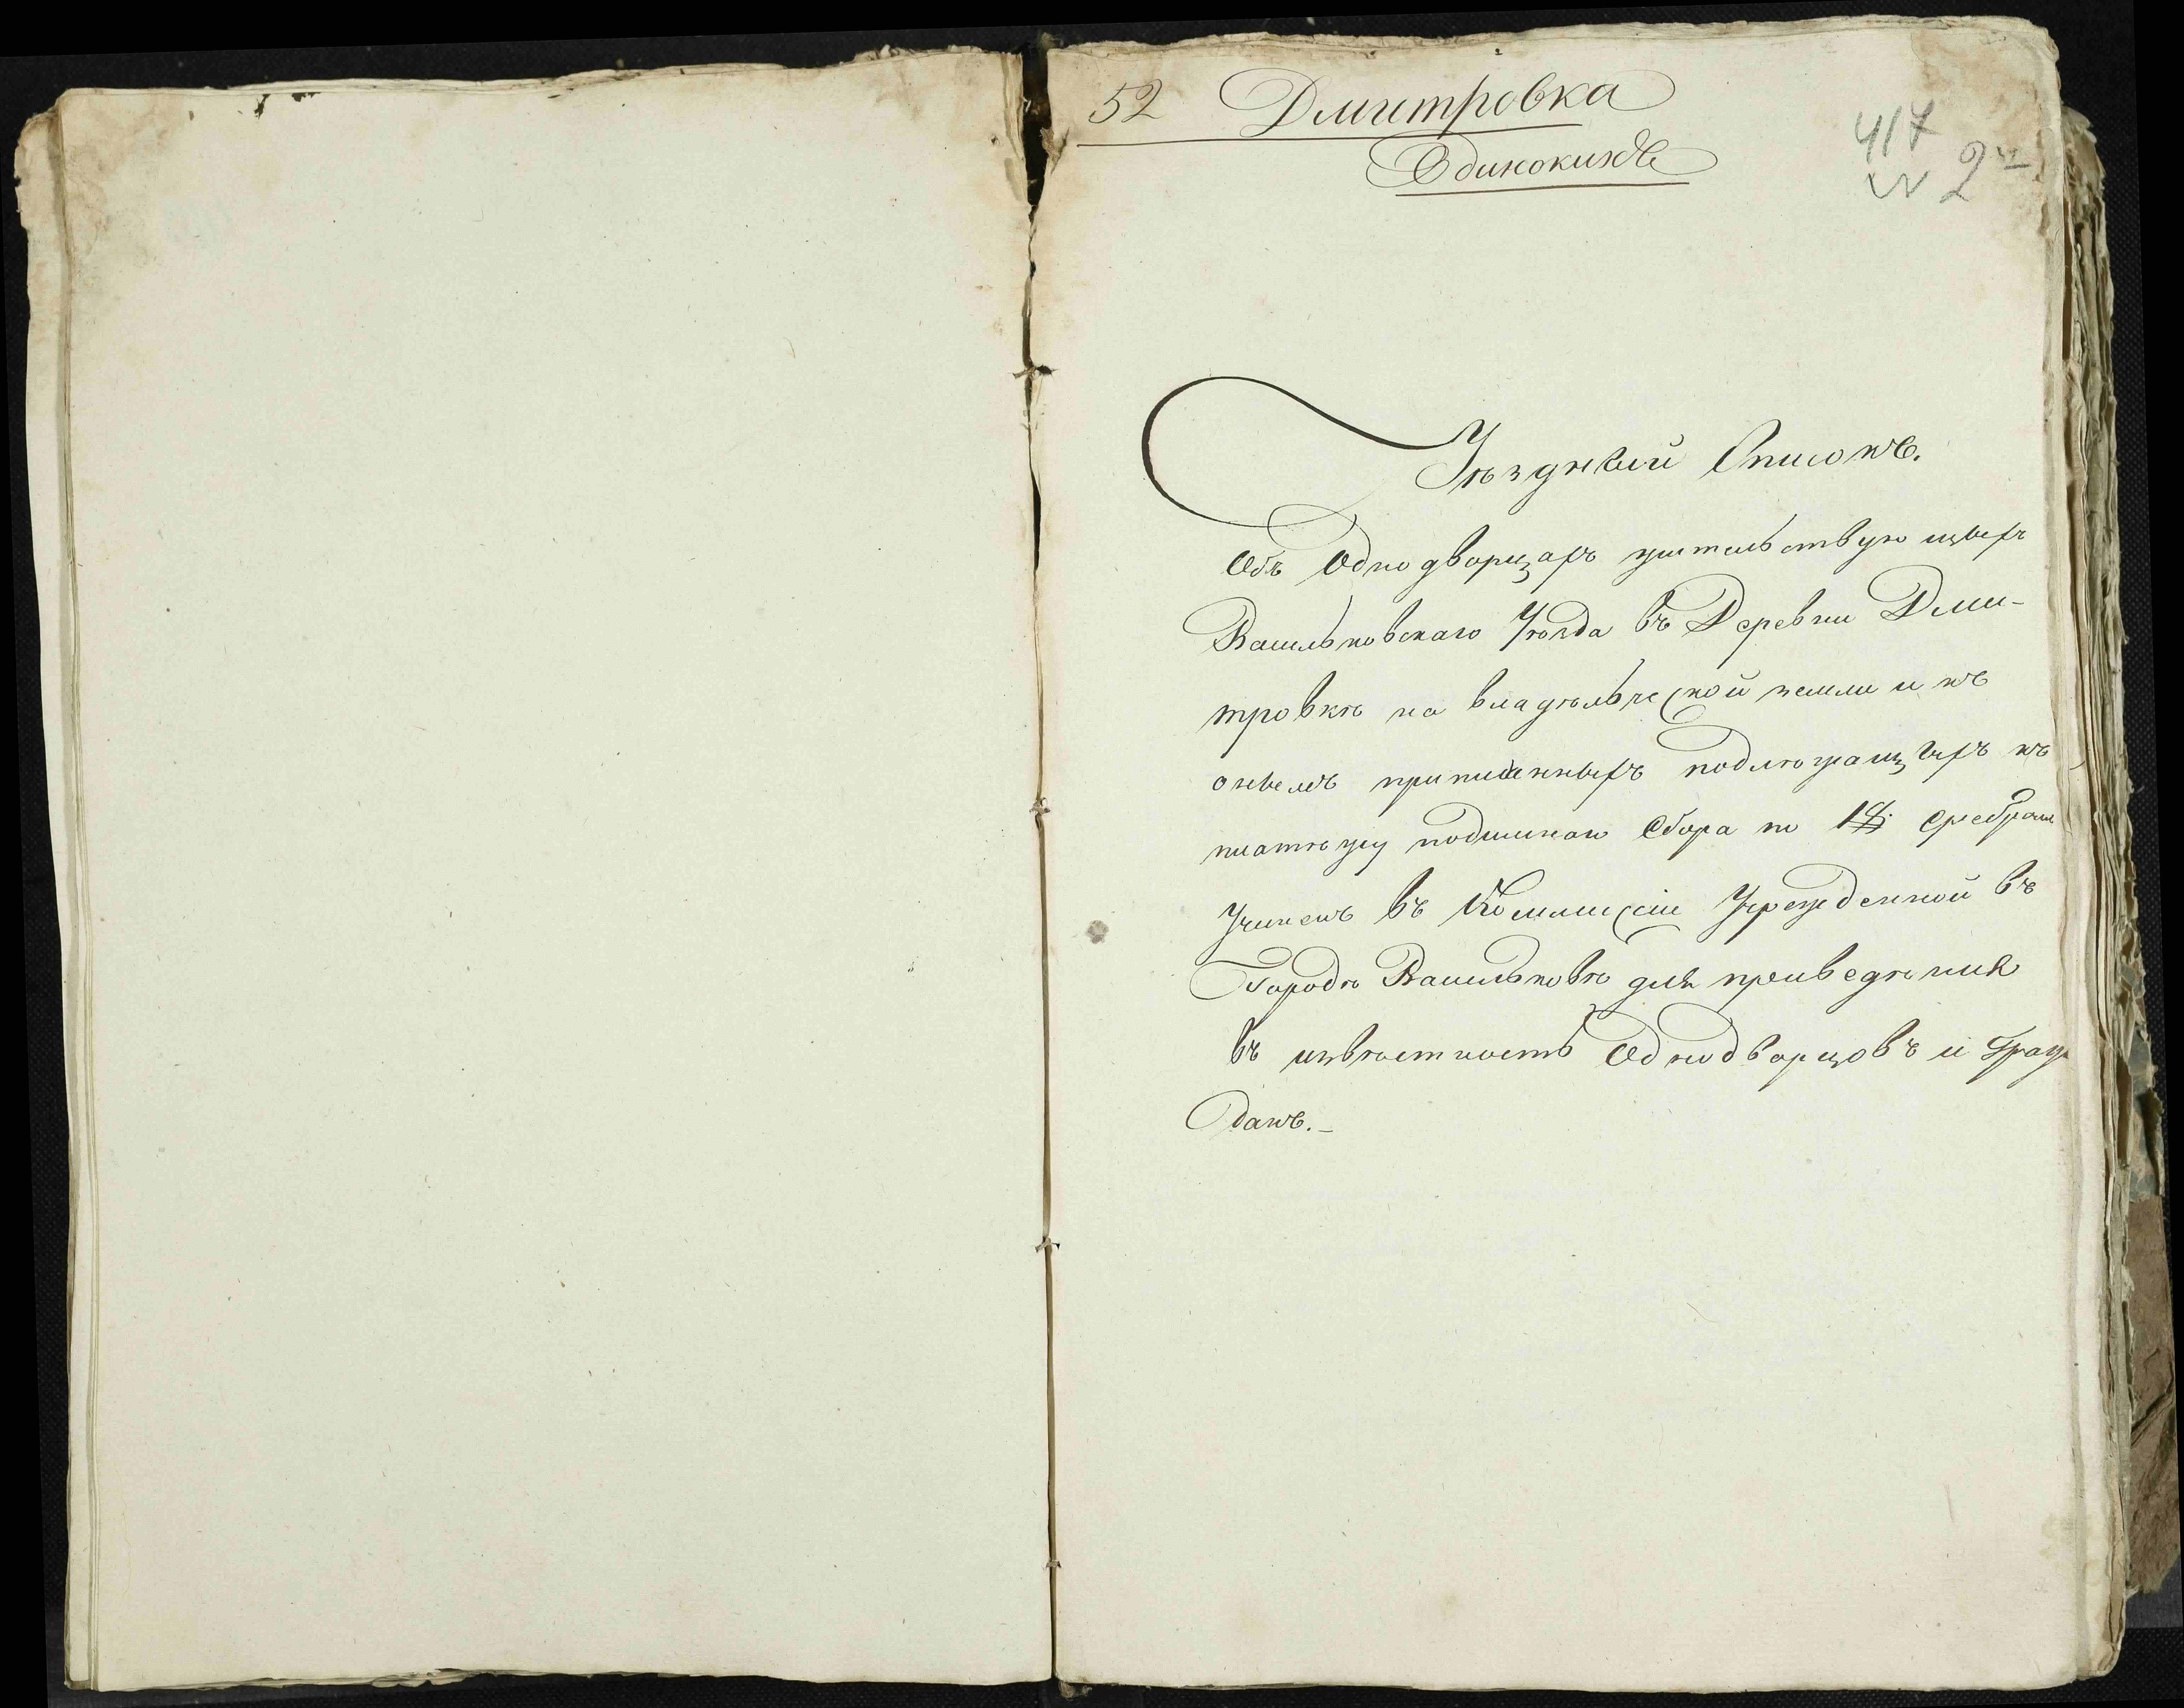 52 Дмитровка
Одинокихъ
417
2
Уѣздный Списокъ.
Объ Однодворцахъ жительствующихъ
Васильковскаго Уѣзда въ Деревни Дми-
тровкѣ на владѣльческой земли и къ
онымъ приписанныхъ подлѣжащихъ къ
платѣжу подымнаго Сбора по сребромъ
Учиненъ въ Коммисіи Учрежденной въ
Городѣ Васильковѣ для приведѣния
въ извѣстность Однодворцовъ и Граж
данъ.-